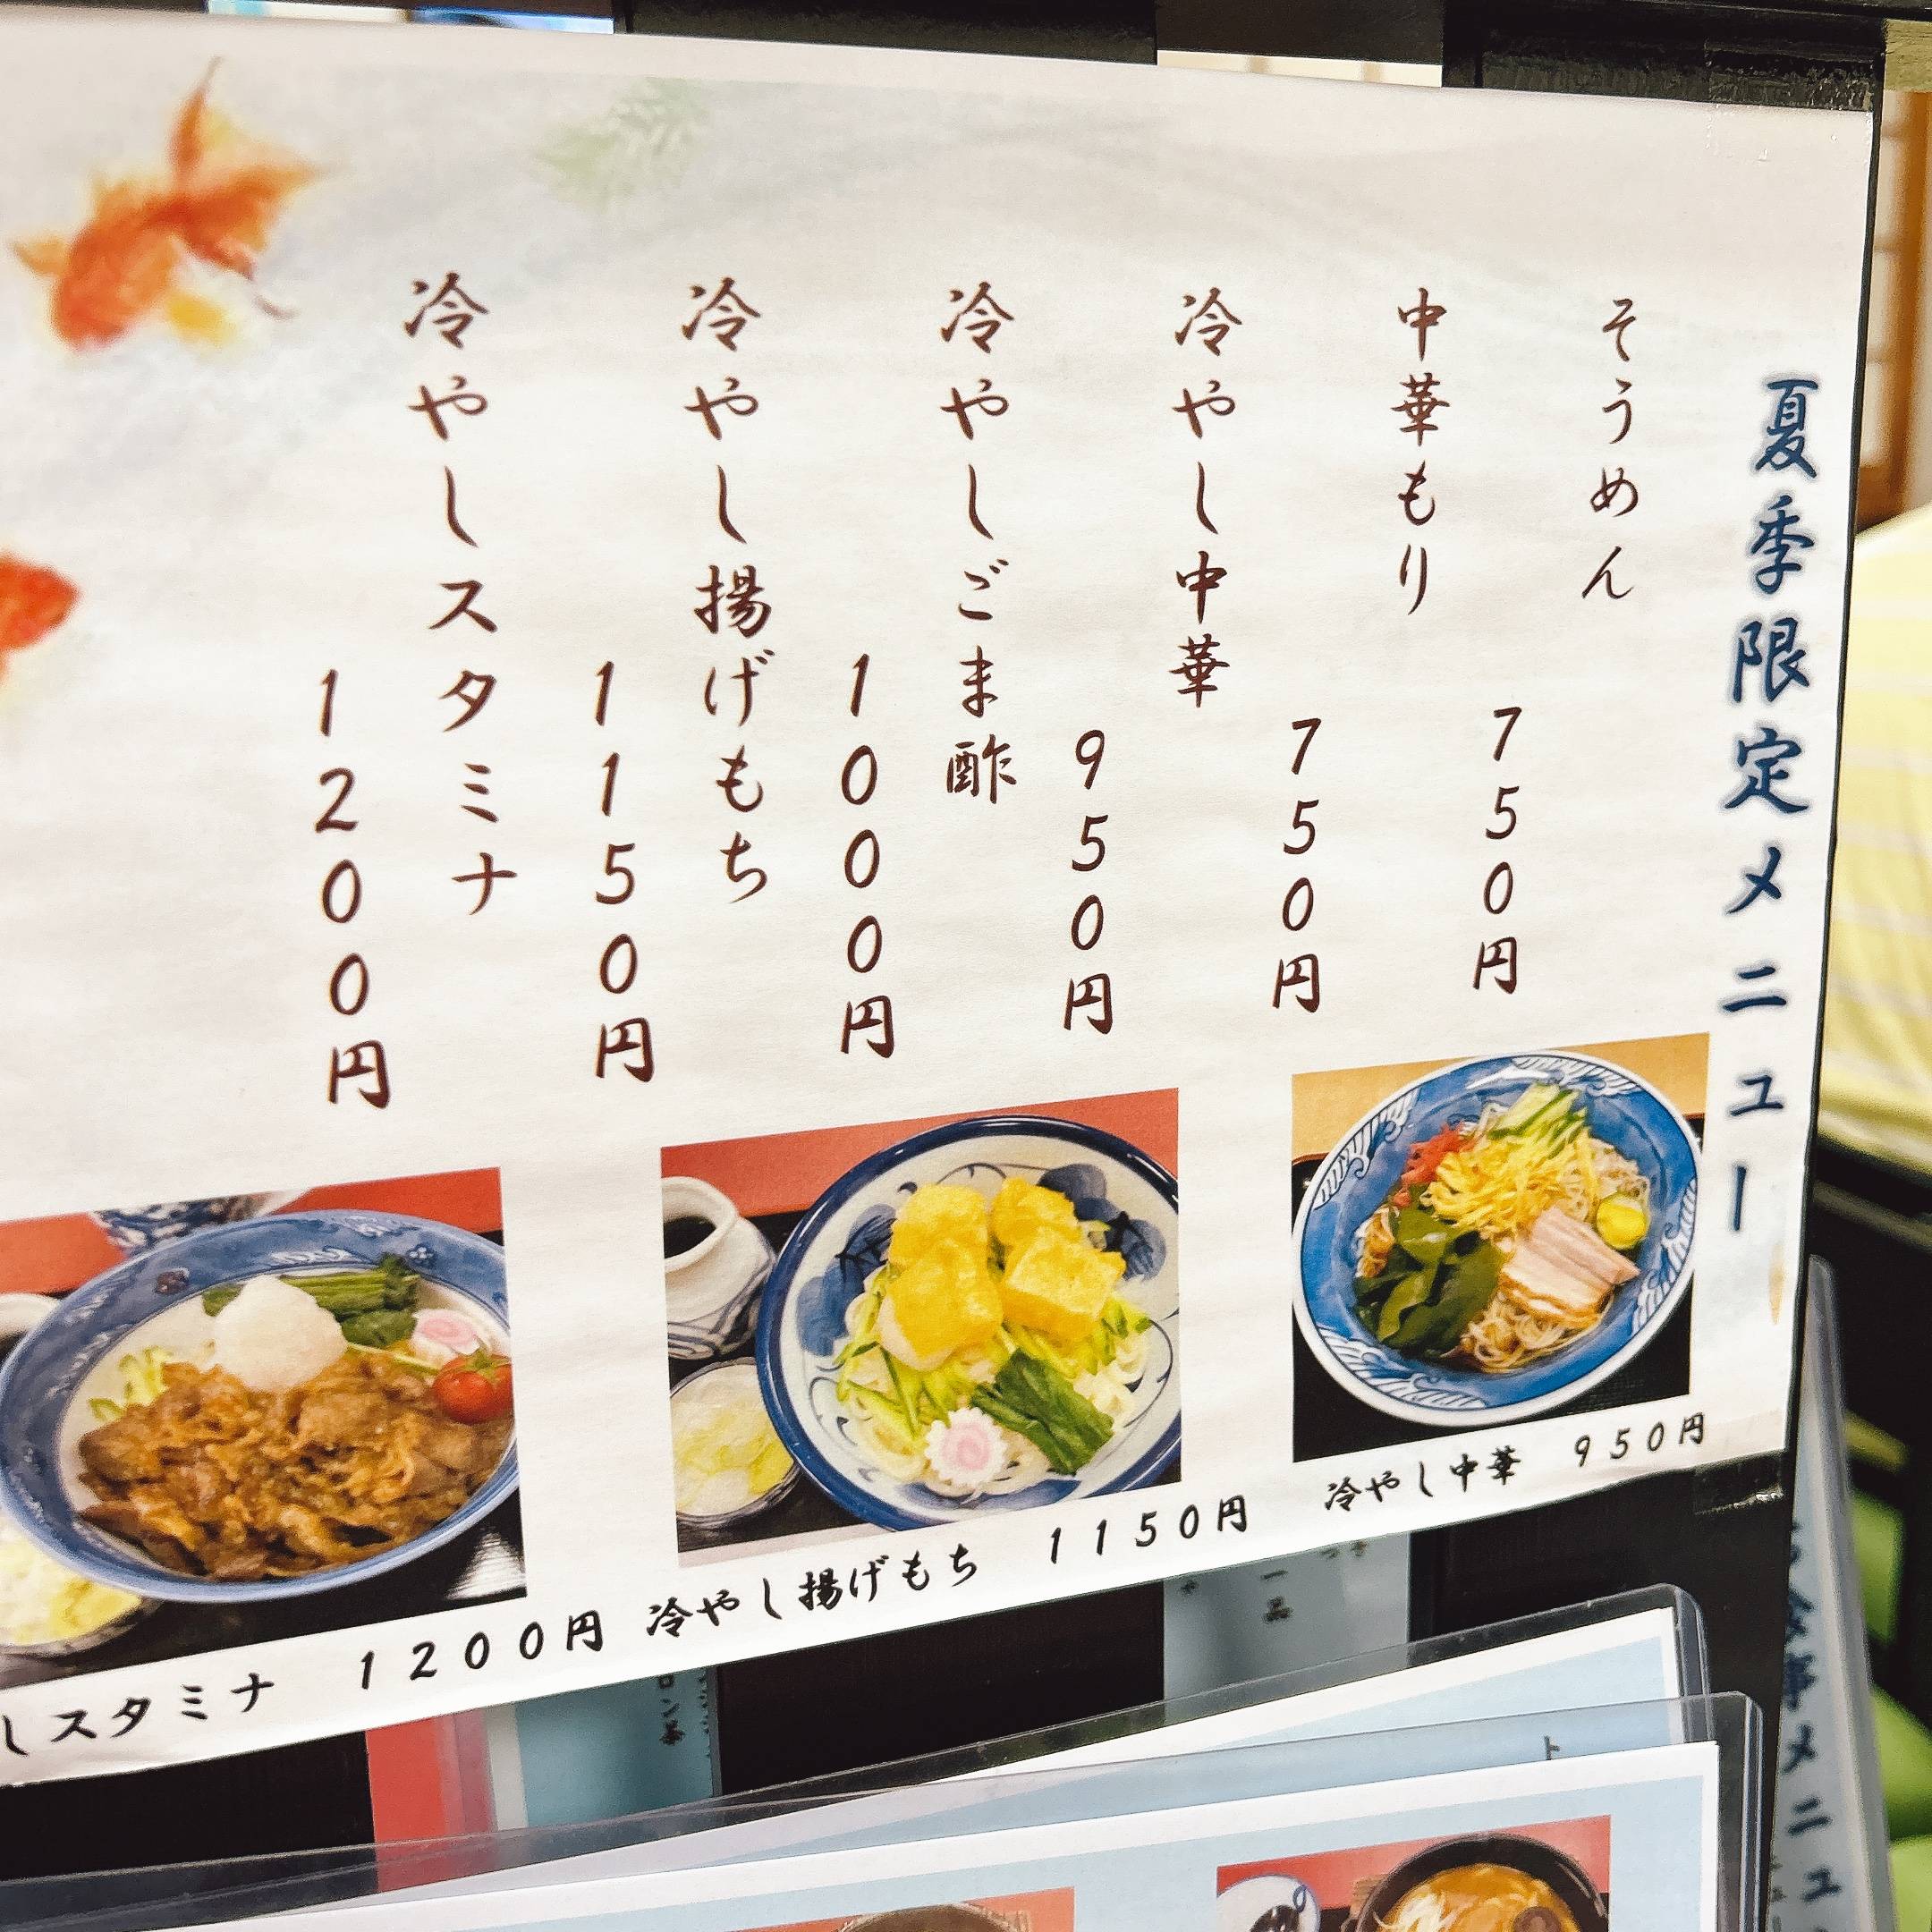 夏季限定メニュー
そうめん
750円
中華もり
750円
冷やし中華
950円
冷やしごま酢
1000円
冷やし揚げもち
1150円
冷やしスタミナ
1200円
冷やし中華 950円
冷やし揚げもち 1150円
しスタミナ 1200円
一品
ロン茶
事メニュ